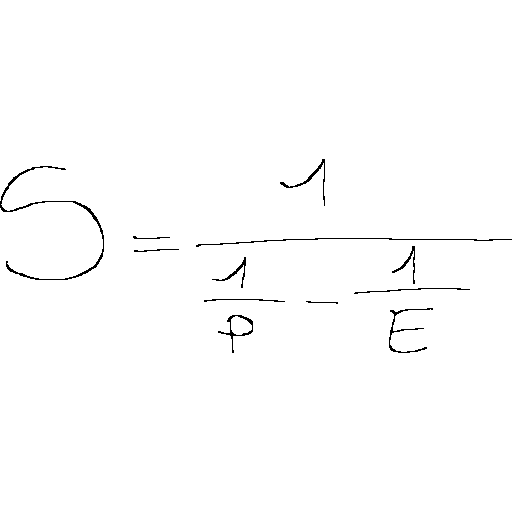 S = \frac{1}{\frac{1}{P} - \frac{1}{E}}